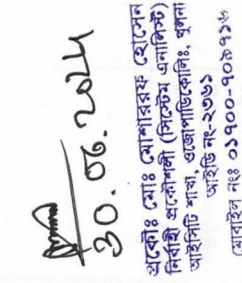 ৩০.০৬.২০২৫
প্রকৌঃ মোঃ মোশাররফ হোসেন
নির্বাহী প্রকৌশলী (সিস্টেম এনালিস্ট)
আইসিটি শাখা, ওজোপাডিকোলিঃ, খুলনা
আইডি নং-২৩৬১
মোবাইল নংঃ ০১৭০০-৭০৯৭১৬